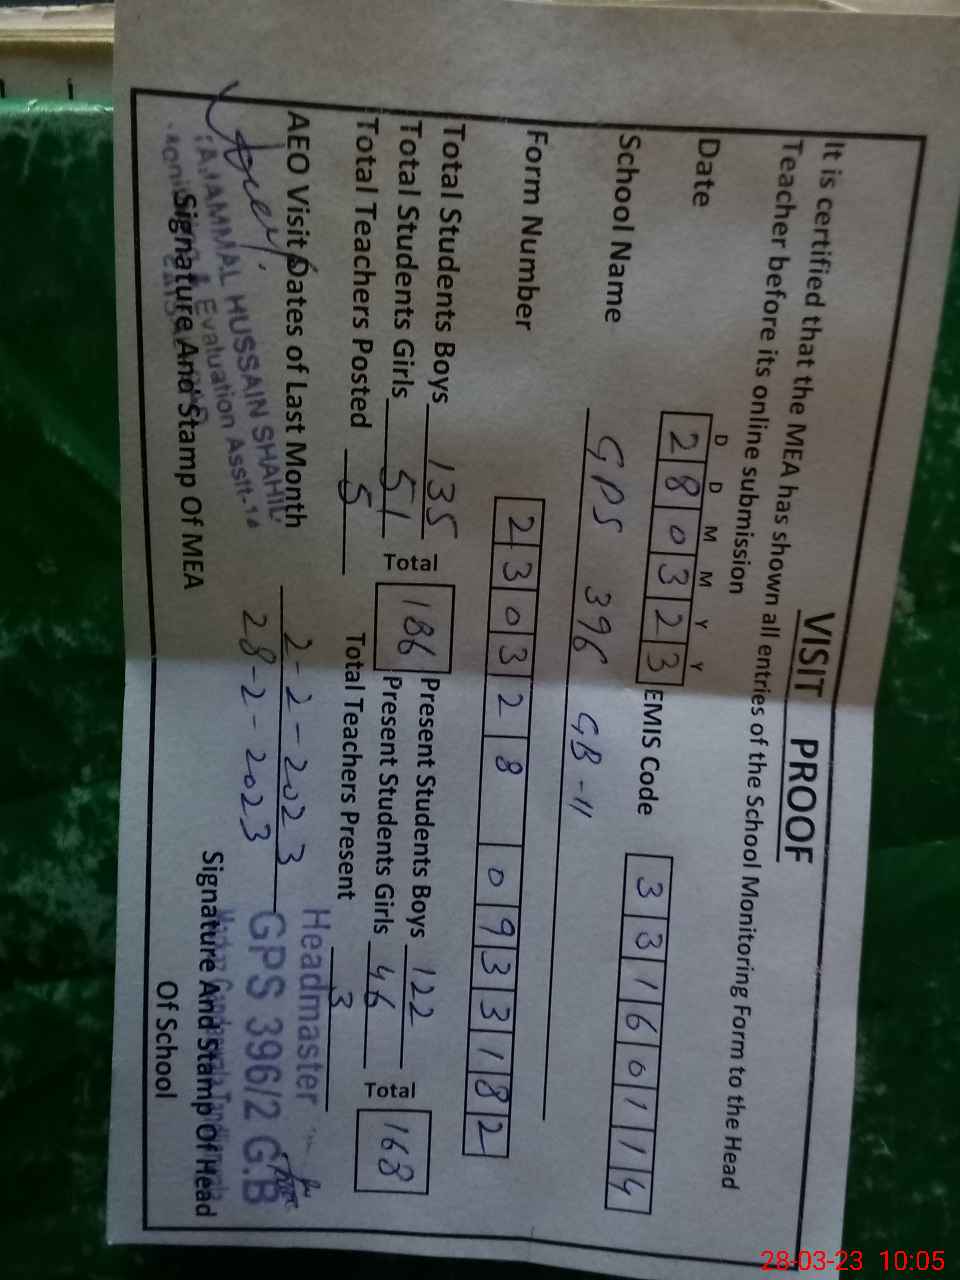 VISIT PROOF
It is certified that the MEA has shown all entries of the School Monitoring Form to the Head
Teacher before its online submission
D D M M Y Y
Date 2 8 0 3 2 3 EMIS Code 3 3 1 6 0 1 1 4
School Name GPS 396 GB-11
Form Number 2 3 0 3 2 8 0 9 3 3 1 8 2
Total Students Boys 135 Total 186 Present Students Boys 122 Total 168
Total Students Girls 51 Present Students Girls 46
Total Teachers Posted 5 Total Teachers Present 3
AEO Visit Dates of Last Month 2-2-2023
28-2-2023
Headmaster
GPS 396/2 G.B
HUSSAIN SHAH
Evaluation Asstt-
Signature And Stamp Of MEA
Signature And Stamp Of Head
Of School
28-03-23 10:05